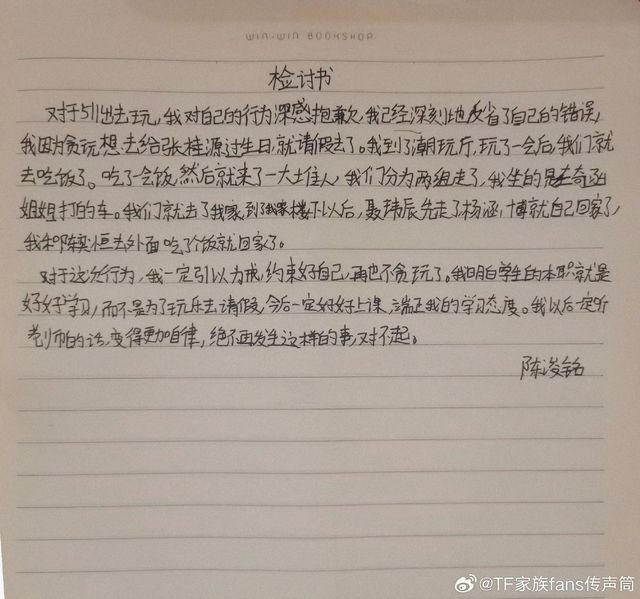 WIN-WIN BOOKSHOP
检讨书
对于511出去玩,我对自己的行为深感抱歉,我已经深刻地反省了自己的错误,
我因为贪玩想去给张桂源过生日,就请假去了。我到了潮玩厅,玩了一会后,我们就
去吃饭了。吃了一会饭,然后就来了一大堆人,我们分为两组走了,我坐的是左奇函
姐姐打的车。我们就去了我家,到了我家楼下以后,聂玮辰先走了杨涵,博就自己回家了,
我和陈奕恒去外面吃了个饭就回家了。
对于这次行为,我一定引以为戒,约束好自己,再也不贪玩了。我明白学生的本职就是
好好学习,而不是为了玩乐去请假,今后一定好好上课,端正我的学习态度。我以后一定听
老师的话,变得更加自律,绝不再发生这样的事,对不起。
陈浚铭
@TF家族fans传声筒